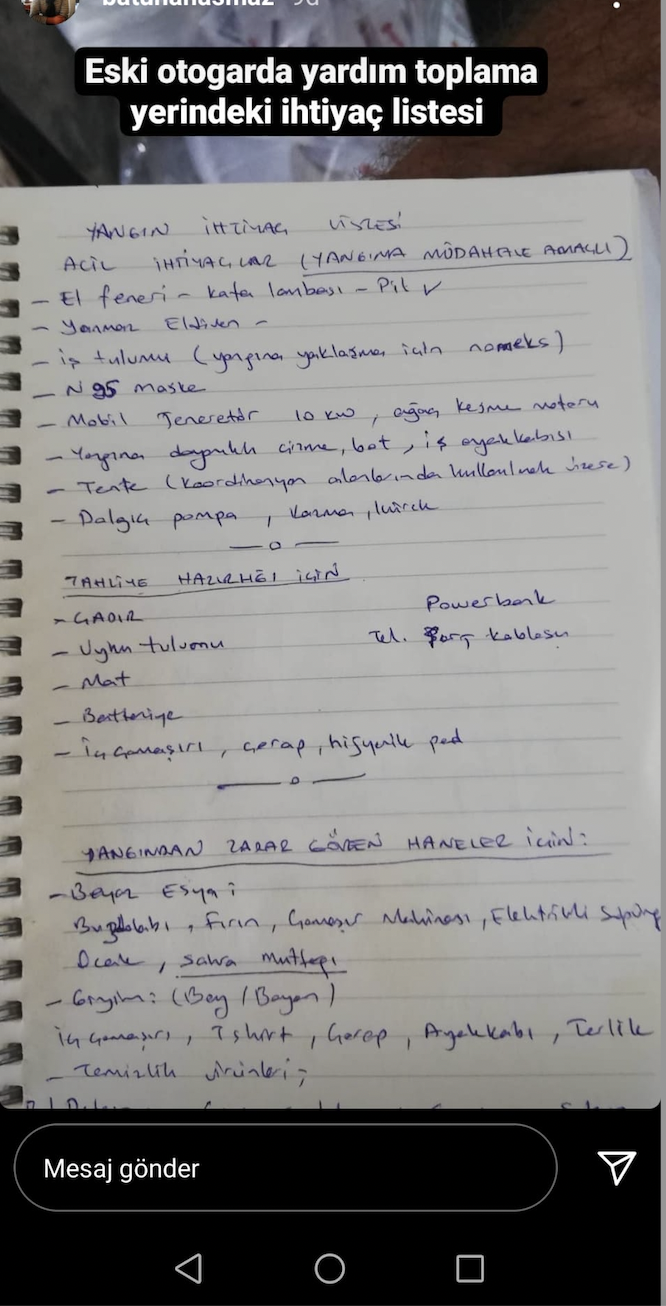 Eski otogarda yardım toplama
yerindeki ihtiyaç listesi
YANGIN İHTİYAÇ LİSTESİ
ACİL İHTİYAÇLAR (YANGINA MÜDAHALE AMAÇLI)
- El feneri - kafa lambası - Pil ✓
- Yanmaz Eldiven -
- iş tulumu (yangına yaklaşma için nomeks)
- N95 maske
- Mobil Jeneratör 10 kw, ağaç kesme motoru
- Yangına dayanıklı çizme, bot, iş ayakkabısı
- Tente (Koordinasyon alanlarında kullanılmak üzere)
- Dalgıç pompa, kazma, kürek
TAHLİYE HAZIRLIĞI İÇİN
- ÇADIR
Powerbank
- Uyku tulumu
Tel. Şarj kablosu
- Mat
- Battaniye
- İç çamaşırı, çorap, hijyenik ped
YANGINDAN ZARAR GÖREN HANELER İÇİN:
- Beyaz Eşya;
Buzdolabı, Fırın, Çamaşır Makinası, Elektrikli Süpürge
Ocak, Sahra mutfağı
- Giyim: (Bay / Bayan)
İç çamaşırı, Tshirt, Çorap, Ayakkabı, Terlik
- Temizlik ürünleri;
Mesaj gönder